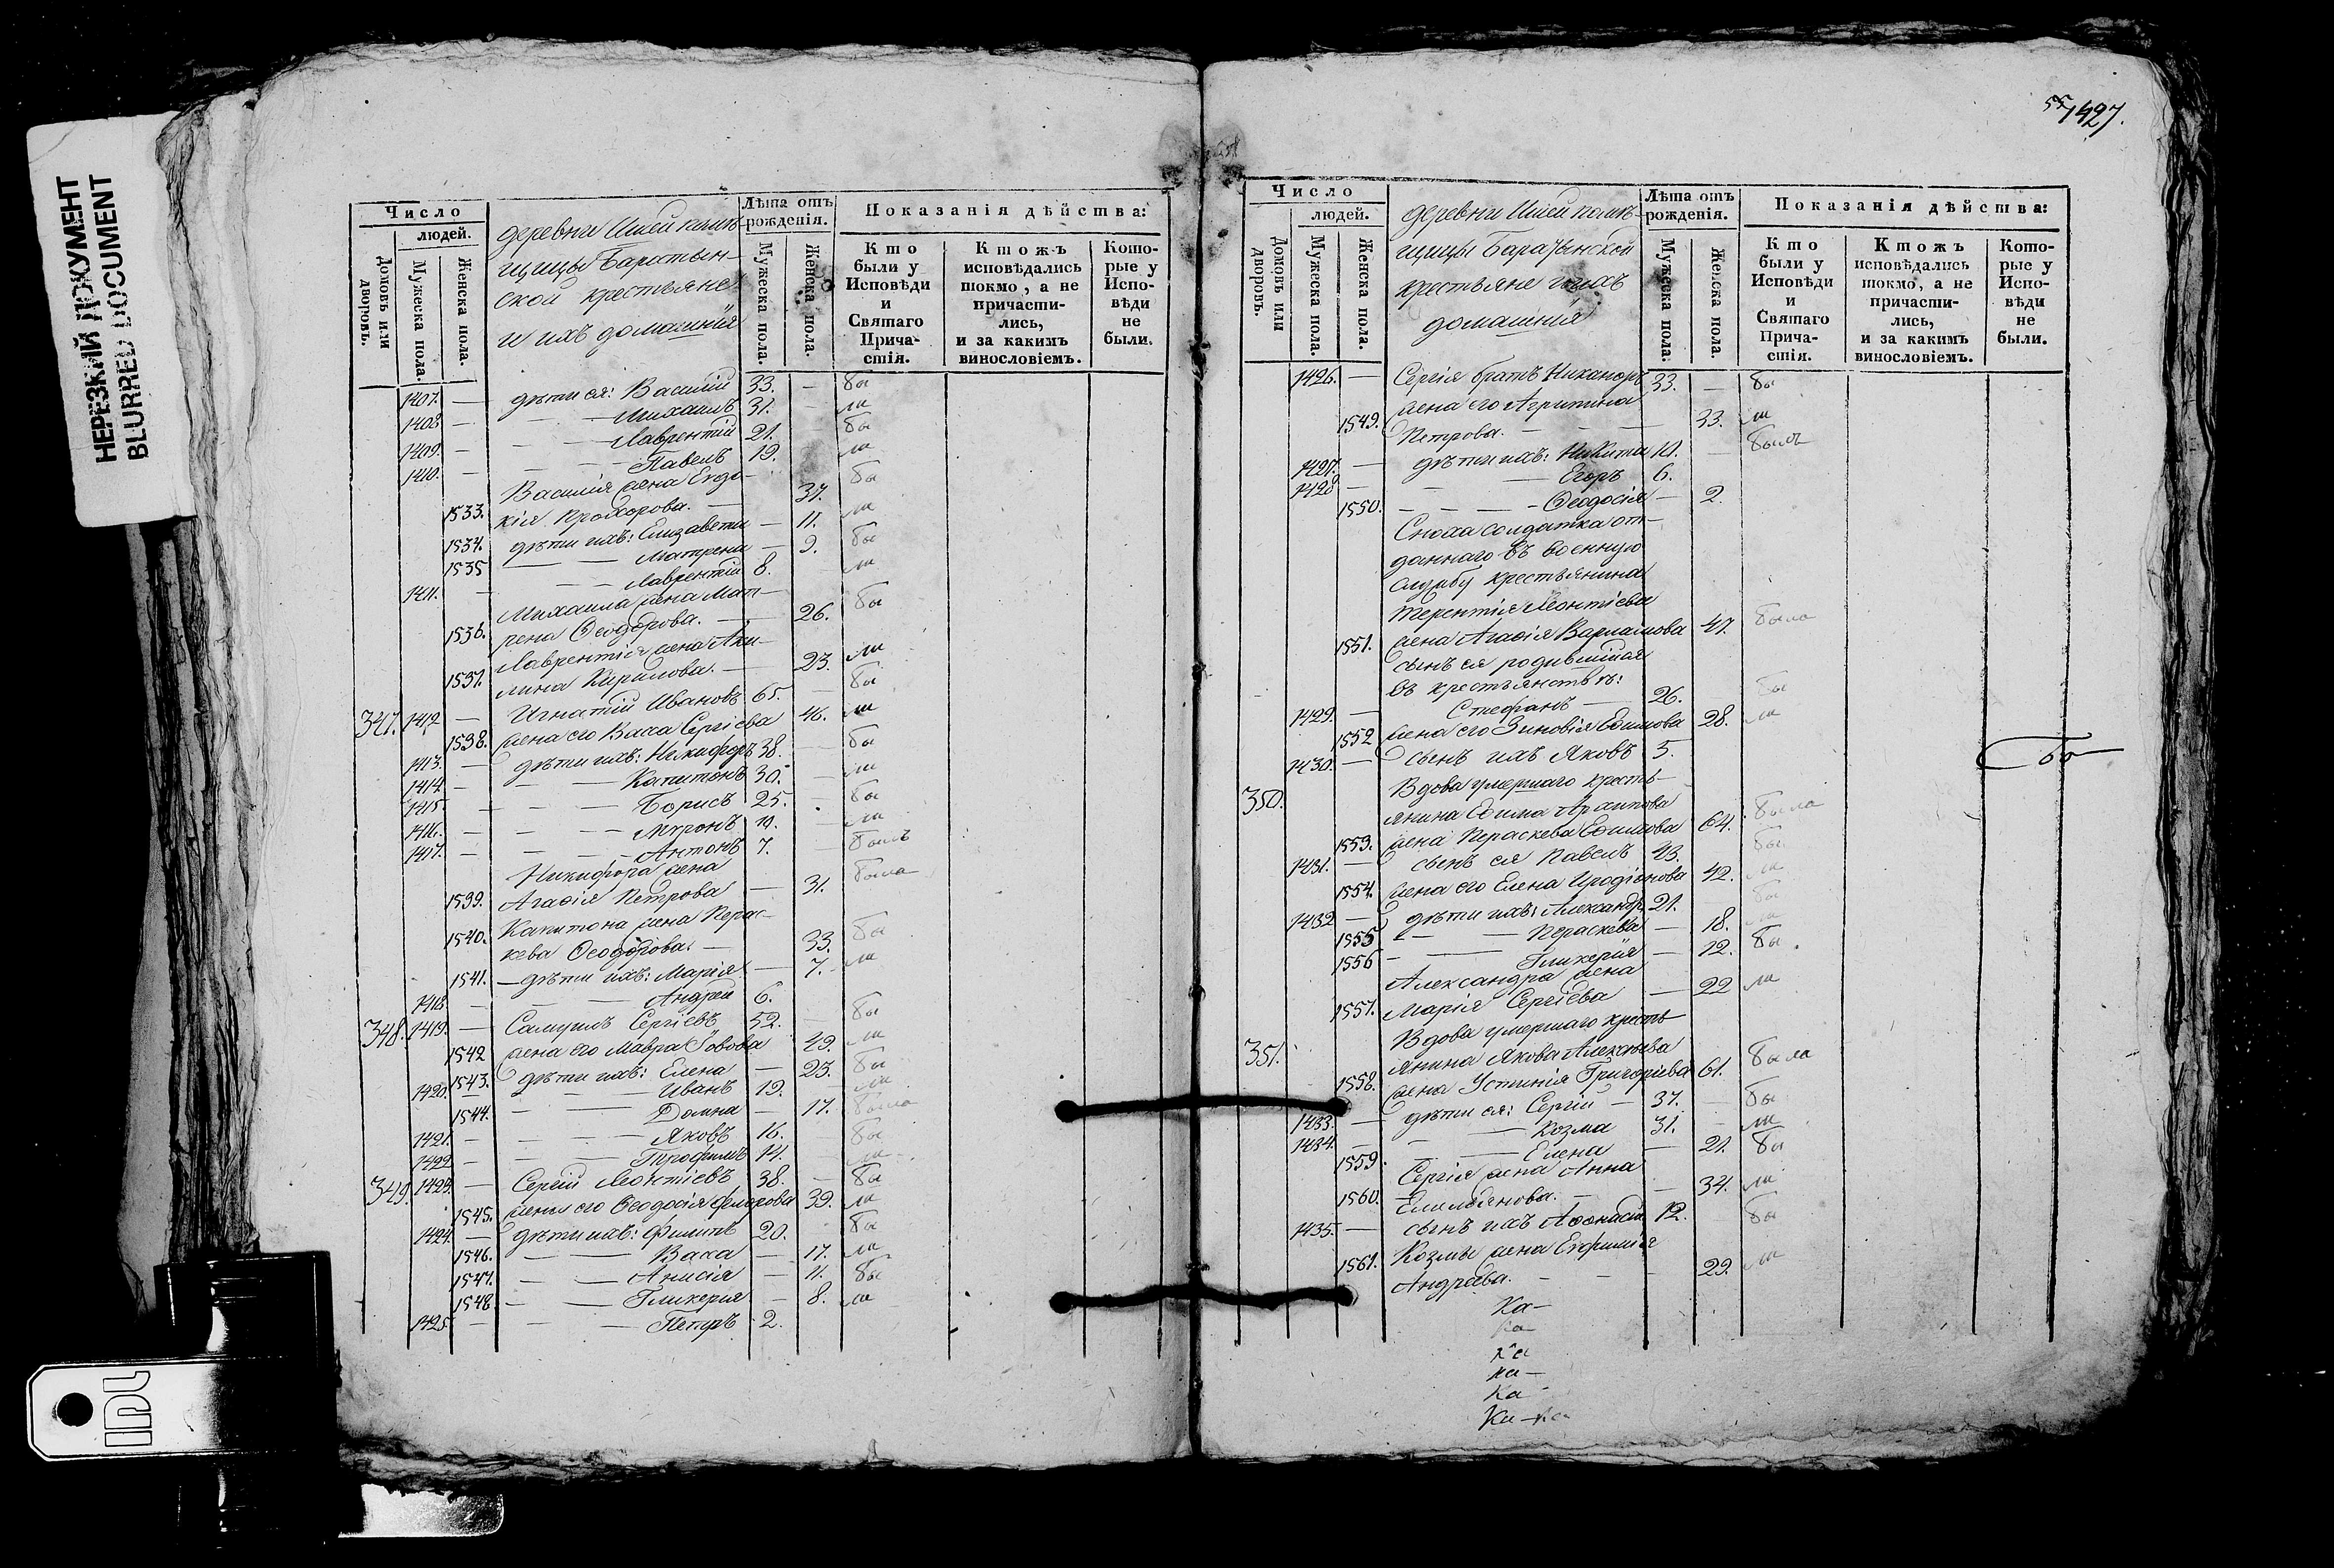 НЕРЕЗКИЙ ДОКУМЕНТ
BLURRED DOCUMENT
Число
людей.
Домовъ или дворовъ.
Мужеска пола.
Женска пола.
деревни помѣ-
щицы Баратын-
ской крестьяне
и ихъ домашнія
Лѣта отъ рождения.
Мужеска пола.
Женска пола.
Показанія дѣйства:
Кто были у Исповѣди и Святаго Причастія.
Ктожъ исповѣдались токмо, а не причастились, и за какимъ винословіемъ.
Которые у Исповѣди не были.
1407. — дѣти ея: Василій 33. — бы
1408 — — Михаилъ 31. — ли
1409. — — Лаврентій 21. бы
1410. — — Павелъ 19. ли
Василія жена Евдо-
1533. кія Прохорова. — 37. бы
1534. дѣти ихъ: Елизавета — 11. ли
1535 — — Матрена — 9. бы
1411. — — Лаврентій 8. ли
Михаила жена Мат-
1536. рена Ѳеодорова. — 26. бы
Лаврентія жена Аку-
1537. лина Кирилова. — 23. ли
347. 1412 — Игнатій Ивановъ 65. — бы
1538. жена его Васса Сергіева 46. ли
1413. — дѣти ихъ: Никифоръ 38. — бы
1414 — — Капитонъ 30. — ли
1415 — — Борисъ 25. бы
1416. — — Миронъ ли
1417. — — Антонъ 7. — былъ
Никифора жена
1539. Агаѳія Петрова — 31. была
1540. Капитона жена Перас-
кева Ѳеодорова. — 33. бы
1541. — дѣти ихъ: Марія — 7. ли
1418. — — Андрей 6.
348. 1419. — Самуилъ Сергіевъ 52. — бы
1542 жена его Мавра Іовова 49. ли
1543. дѣти ихъ: Елена — 23. бы
1420. — — Иванъ 19. — ли
1544. — — Домна — 17. была
1421. — — Яковъ 16. — бы
1422 — — Трофимъ 14. — ли
349. 1423. — Сергій Леонтіевъ 38. — бы
1545. жена его Ѳеодосія 39. ли
1424. — дѣти ихъ: Филипъ 20. бы
1546. — — Васса — 17. ли
1547. — — Анисія — 11. бы
1548 — — Гликерія — 8. ли
1425. — — Петръ 2.
1427.
Число
людей.
Домовъ или дворовъ.
Мужеска пола.
Женска пола.
деревни помѣ-
щицы Баратынской
крестьяне и ихъ
домашнія
Лѣта отъ рождения.
Мужеска пола.
Женска пола.
Показанія дѣйства:
Кто были у Исповѣди и Святаго Причастія.
Ктожъ исповѣдались токмо, а не причастились, и за какимъ винословіемъ.
Которые у Исповѣди не были.
1426. — Сергія братъ Никаноръ 33. — бы
жена его Агрипина
1549. Петрова. — 33. ли
1427. — дѣти ихъ: Никита — былъ
1428 — — Егоръ 6.
1550. — — Ѳеодосія — 2.
Сноха солдатка от-
даннаго въ военную
службу крестьянина
Терентія Леонтіева
1551. жена Агаѳія Варламова 47. была
сынъ ея родившійся
въ крестьянствѣ:
1429. — Стефанъ — 26. бы
1552 жена его Зиновія Ефимова 28. ли
1430. — сынъ ихъ Яковъ 5. —
350. Вдова умершаго кресть-
янина Ефима
1553. жена Пераскева Ефимова 64. была
1431. — сынъ ея Павелъ 43. бы
1554. жена его Елена Иродіонова 42. ли
1432 — дѣти ихъ: Александръ 21. — бы
1555 — — Пераскева — 18. ли
1556 — — Гликерія — 12. бы
Александра жена
1557. Марія Сергіева — 22 ли
351. Вдова умершаго кресть-
янина Якова Алексѣева
1558. жена Устинія Григоріева 61. была
1433. — дѣти ея: Сергій — 37. — бы
1434. — — Козма 31. — ли
1559. — — Елена — 21. бы
Сергія жена Анна
1560. Емильянова. — — 34. ли
1435. — сынъ ихъ Аѳонасій 12. бы
Козмы жена Евфимія
1561. Андреева. — — 29. ли
Ка-
ка
ка
ка-
Ка
Ка-ка